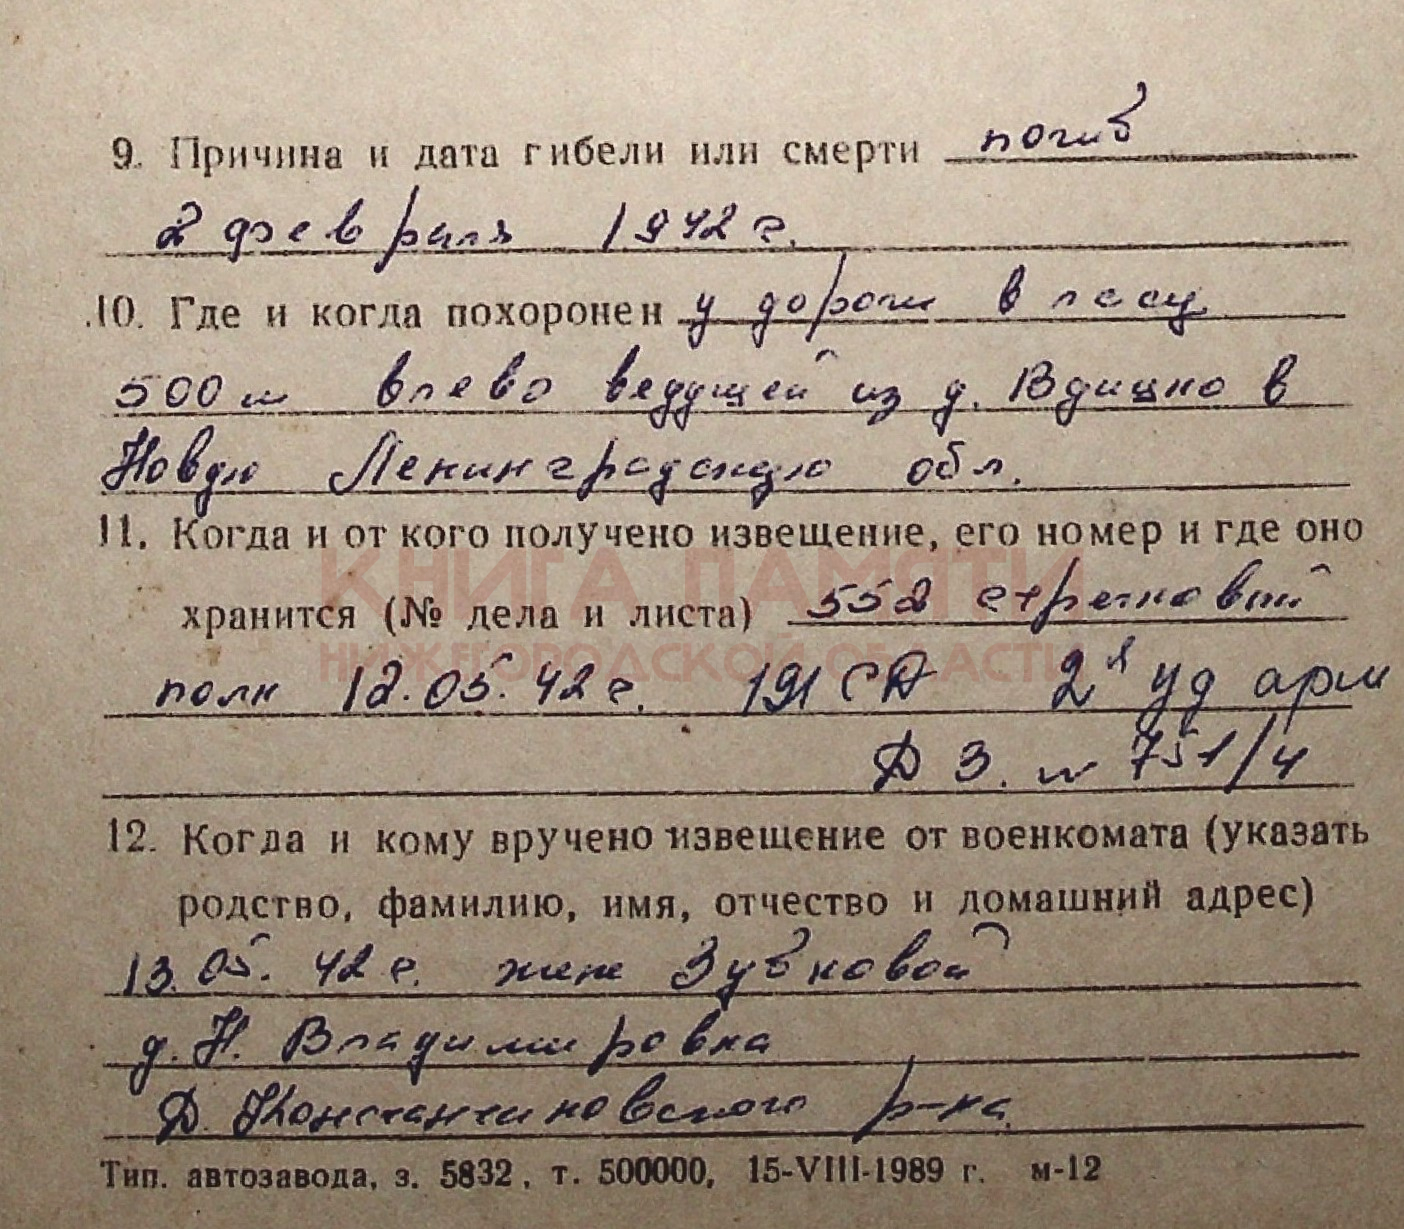 9. Причина и дата гибели или смерти погиб
2 февраля 1942 г.
10. Где и когда похоронен у дороги в лесу
500 м влево ведущей из д. Вдицко в
Новую Ленинградскую обл.
11. Когда и от кого получено извещение, его номер и где оно
КНИГА ПАМЯТИ
хранится (№ дела и листа) 552 стрелковый
НИЖЕГОРОДСКОЙ ОБЛАСТИ
полк 12.05.42 г. 191 СД 2я уд арм
Д 3. н 751/4
12. Когда и кому вручено извещение от военкомата (указать
родство, фамилию, имя, отчество и домашний адрес)
13.05.42 г. жене Зубковой
д. Н. Владимировка
Д. Константиновского р-на.
Тип. автозавода, з. 5832, т. 500000, 15-VIII-1989 г. м-12